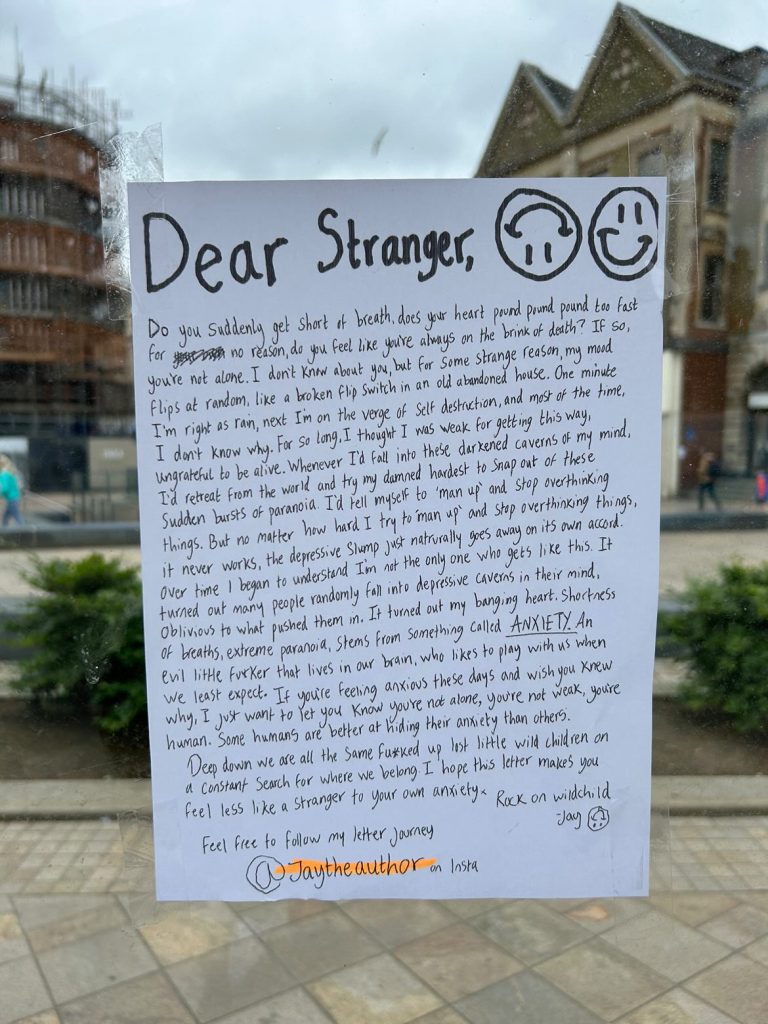 Dear Stranger,
Do you suddenly get short of breath, does your heart pound pound pound too fast
for no reason, do you feel like you're always on the brink of death? If so,
you're not alone. I don't know about you, but for some strange reason, my mood
flips at random, like a broken flip switch in an old abandoned house. One minute
I'm right as rain, next I'm on the verge of self destruction, and most of the time,
I don't know why. For so long, I thought I was weak for getting this way,
ungrateful to be alive. Whenever I'd fall into these darkened caverns of my mind,
I'd retreat from the world and try my damned hardest to snap out of these
sudden bursts of paranoia. I'd tell myself to 'man up' and stop overthinking
things. But no matter how hard I try to 'man up' and stop overthinking things,
it never works, the depressive slump just natrurally goes away on its own accord.
Over time I began to understand I'm not the only one who gets like this. It
turned out many people randomly fall into depressive caverns in their mind,
oblivious to what pushed them in. It turned out my banging heart. Shortness
of breaths, extreme paranoia, stems from something called ANXIETY. An
evil little fu*ker that lives in our brain, who likes to play with us when
we least expect. If you're feeling anxious these days and wish you knew
why, I just want to let you know you're not alone, you're not weak, you're
human. Some humans are better at hiding their anxiety than others.
Deep down we are all the same fu*ked up lost little wild children on
a constant search for where we belong. I hope this letter makes you
feel less like a stranger to your own anxiety x Rock on wildchild
-Jay
Feel free to follow my letter journey
@Jaytheauthor on Insta